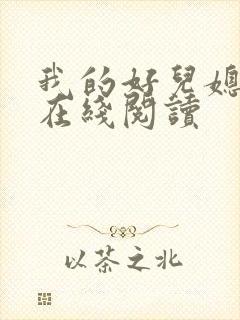 我的好兒媳
在綫閱讀
以茶之北